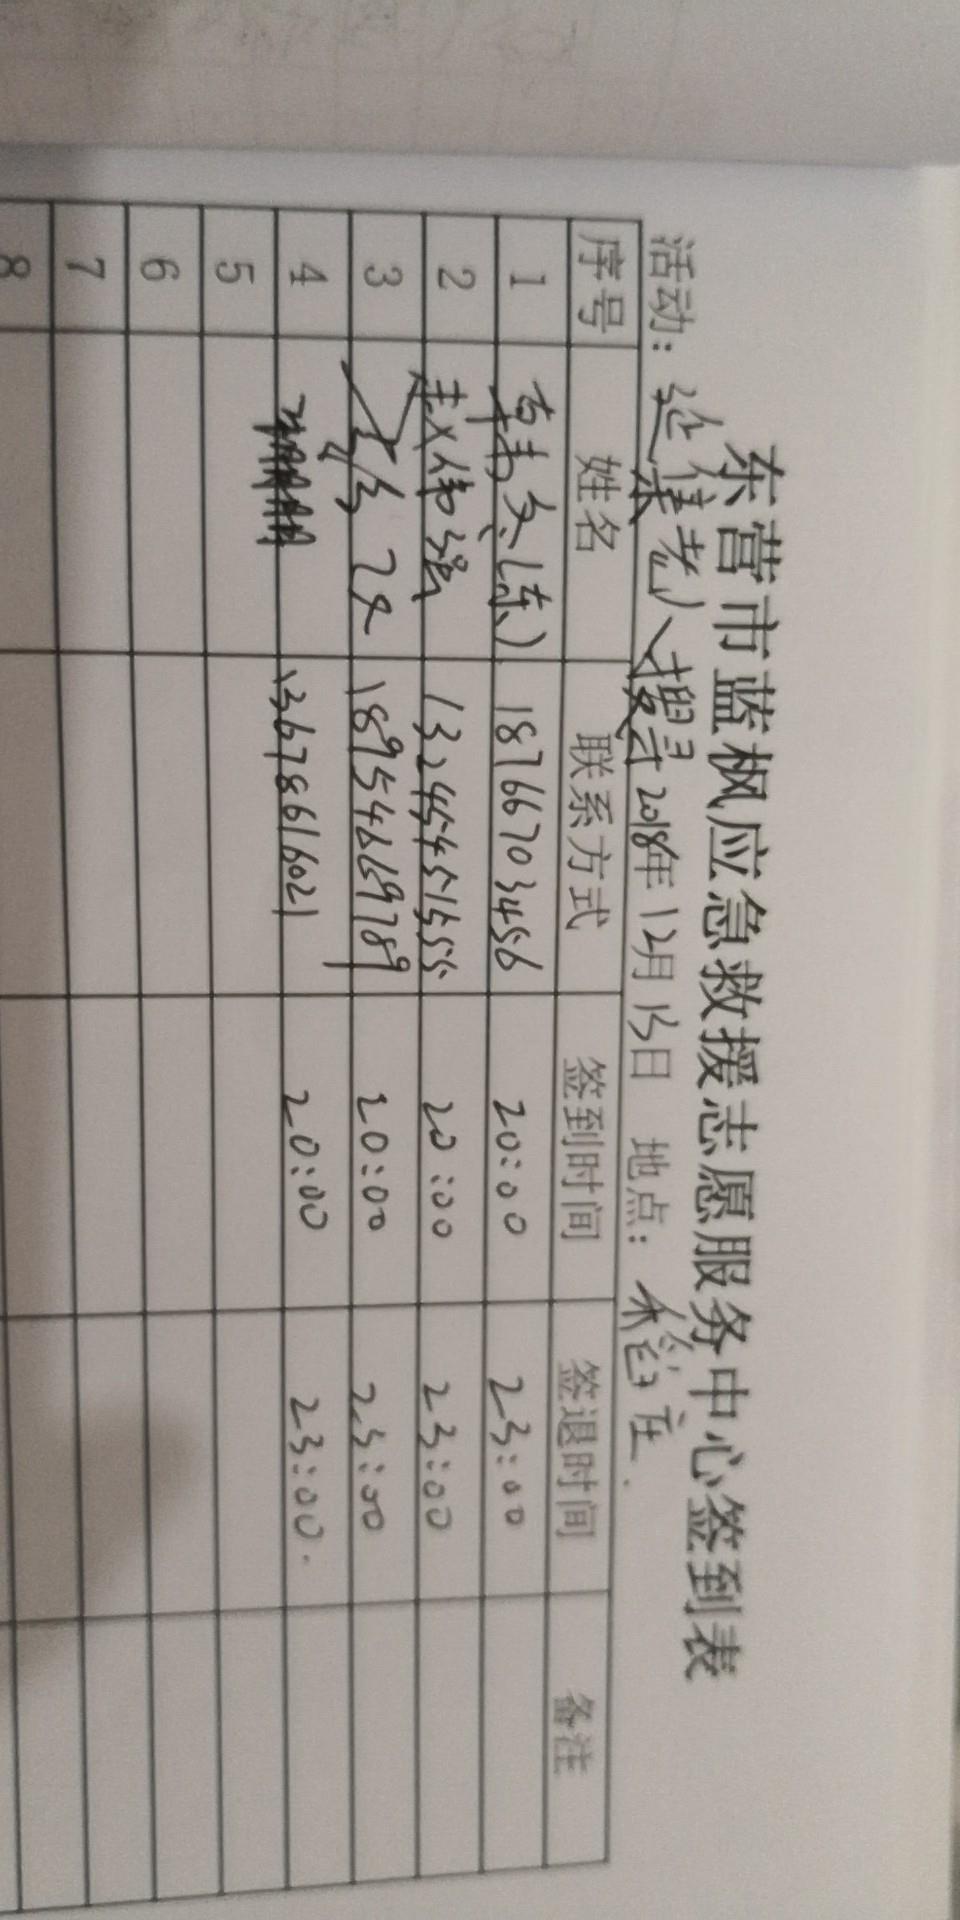 东营市蓝枫应急救援志愿服务中心签到表
活动: 老人搜寻 2018年12月13日 地点:
序号 姓名 联系方式 签到时间 签退时间 备注
1 18766703456 20:00 23:00
2 赵伟强 13245451555 20:00 23:00
3 18954669789 20:00 23:00
4 13678661602 20:00 23:00.
5
6
7
8